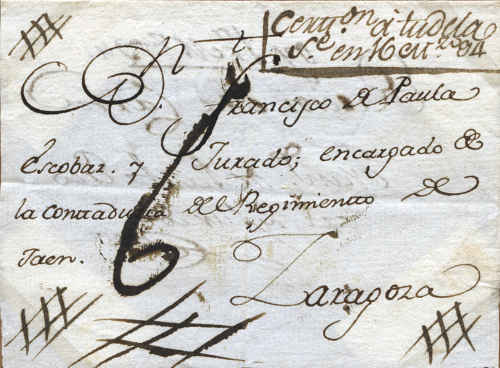 Certon à tudela
Sᵉ en 16 en.ᵒ 94
D.ⁿ Francisco de Paula
Escobar. y Jurado; encargado de
la contraduria del Regimiento de
Jaen.
6
Zaragoza